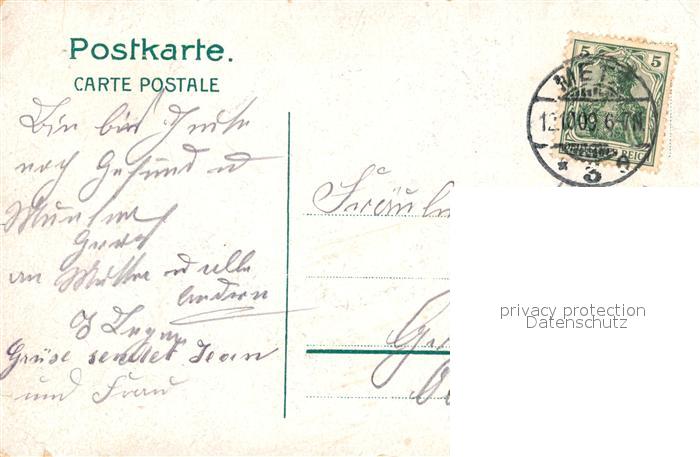 Postkarte.
CARTE POSTALE
Bin bis heute
noch Gesund u
Munter
Gruß
an Mutter u alle
andern
Grüse sendet Jean
und Frau
5 5
METZ
12.10.09 6-7N
* 3
REICH
Fräul
privacy protection
Datenschutz